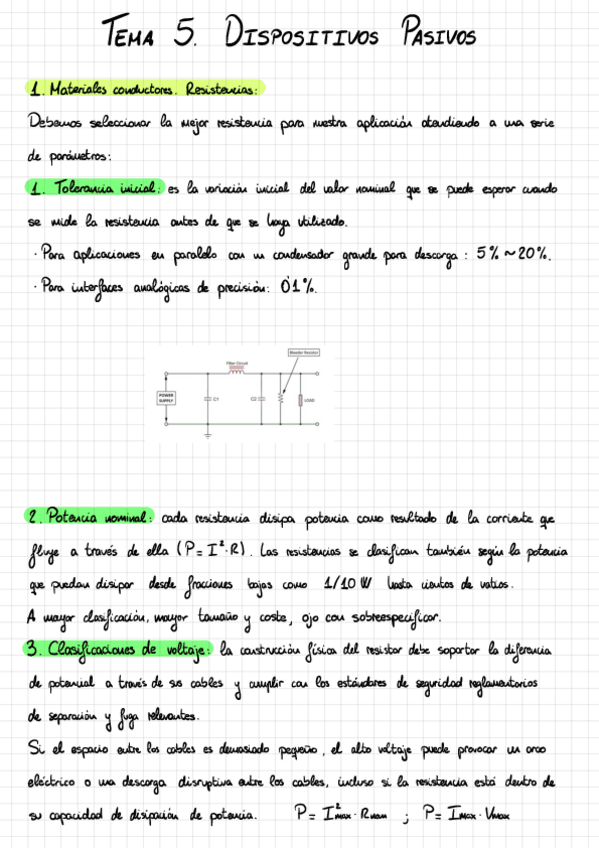 TEMA 5. DISPOSITIVOS PASIVOS
1. Materiales conductores. Resistencias:
Debemos seleccionar la mejor resistencia para nuestra aplicación atendiendo a una serie
de parámetros:
1. Tolerancia inicial: es la variación inicial del valor nominal que se puede esperar cuando
se mide la resistencia antes de que se haya utilizado.
· Para aplicaciones en paralelo con un condensador grande para descarga: 5% ~ 20%.
· Para interfaces analógicas de precisión: 0'1%.
Filter Circuit
Bleeder Resistor
POWER
SUPPLY
C1
C2
LOAD
2. Potencia nominal: cada resistencia disipa potencia como resultado de la corriente que
fluye a través de ella (P = I²·R). Las resistencias se clasifican también según la potencia
que puedan disipar desde fracciones bajas como 1/10 W hasta cientos de vatios.
A mayor clasificación, mayor tamaño y coste, ojo con sobreespecificar.
3. Clasificaciones de voltaje: la construcción física del resistor debe soportar la diferencia
de potencial a través de sus cables y cumplir con los estándares de seguridad reglamentarios
de separación y fuga relevantes.
Si el espacio entre los cables es demasiado pequeño, el alto voltaje puede provocar un arco
eléctrico o una descarga disruptiva entre los cables, incluso si la resistencia está dentro de
su capacidad de disipación de potencia. P = I²max · Rnom ; P = Imax · Vmax